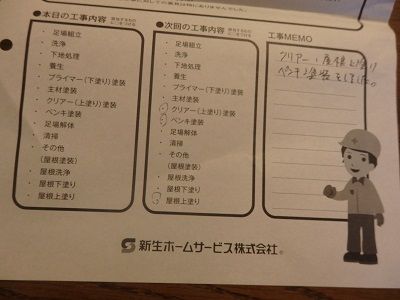 ●本日の工事内容
・足場組立
・洗浄
・下地処理
・養生
・プライマー(下塗り)塗装
・主材塗装
・クリアー(上塗り)塗装
・ペンキ塗装
・足場解体
・清掃
・その他
(屋根塗装)
・屋根洗浄
・屋根下塗り
・屋根上塗り
●次回の工事内容
・足場組立
・洗浄
・下地処理
・養生
・プライマー(下塗り)塗装
・主材塗装
・クリアー(上塗り)塗装
・ペンキ塗装
・足場解体
・清掃
・その他
(屋根塗装)
・屋根洗浄
・屋根下塗り
・屋根上塗り
工事MEMO
クリアー、屋根上塗り
ペンキ塗装をしました。
新生ホームサービス株式会社。